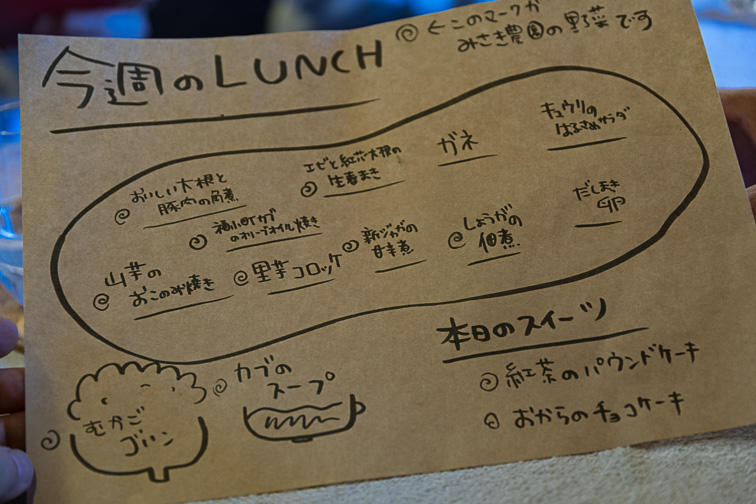 今週のLUNCH
←このマークが
みさき農園の野菜です
おいしい大根と
豚肉の角煮
エビと紅芯大根の
生春まき
ガネ
キュウリの
はるさめサラダ
福小町カブ
のオリーブオイル焼き
新ジャガの
甘辛煮
しょうがの
佃煮
だしまき
卵
山芋の
おこのみ焼き
里芋コロッケ
本日のスイーツ
紅茶のパウンドケーキ
おからのチョコケーキ
カブの
スープ
むかご
ゴハン